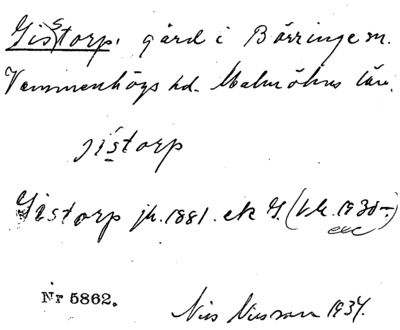 Gisstorp, gård i Börringe sn.
Vemmenhögs hd. Malmöhus län.
jístorp
Gistorp jb. 1881. ek
Nr 5862.
Nils Nilsson 1934.